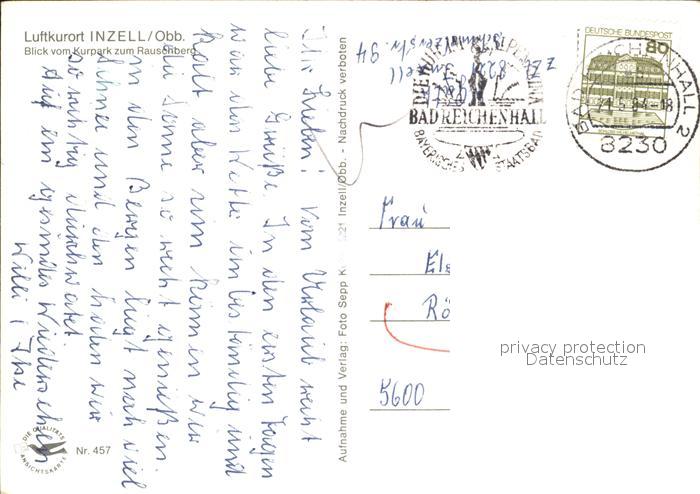 Luftkurort INZELL/Obb.
Blick vom Kurpark zum Rauschberg
Ihr Lieben! Vom Urlaub recht
liebe Grüße. In den ersten Tagen
war das Wetter unbeständig und
kalt aber nun können wir
die Sonne so recht genießen.
In den Bergen liegt noch viel
Schnee und den haben wir
so richtig durchwatet.
Auf ein gesundes Wiedersehen
Willi & Ilse
DIE QUALITÄTS
ANSICHTSKARTE
Nr. 457
Aufnahme und Verlag: Foto Sepp K 8221 Inzell/Obb. - Nachdruck verboten
z. Zt. 8221 Inzell
94
BAD REICHENHALL
BAYERISCHES STAATSBAD
DEUTSCHE BUNDESPOST
80
BAD REICHENHALL 2
24.5.84-18
8230
Frau
Els
Rö
5600
privacy protection
Datenschutz